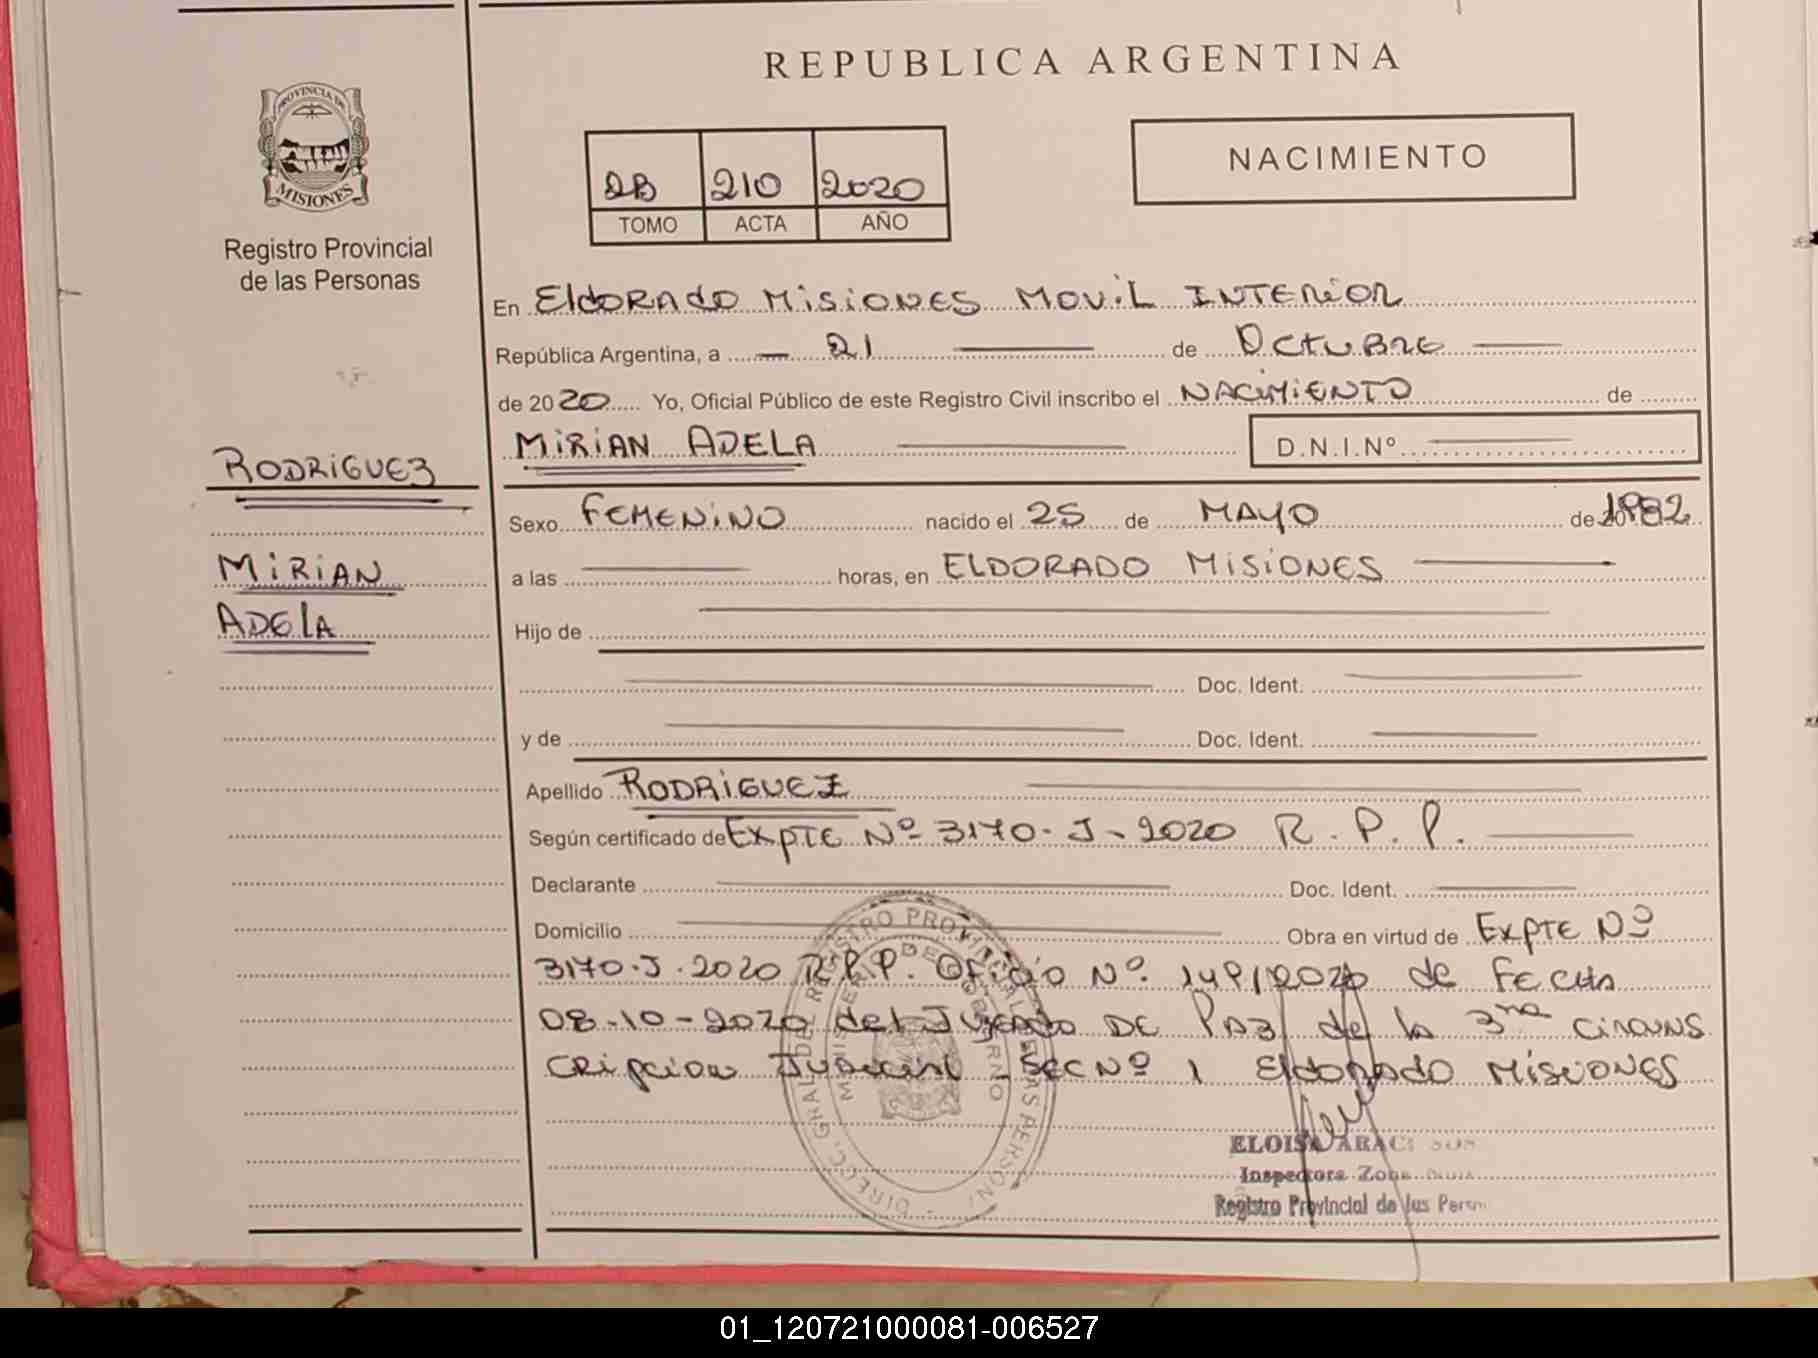 REPUBLICA ARGENTINA
PROVINCIA DE
MISIONES
Registro Provincial
de las Personas
NACIMIENTO
2B 210 2020
TOMO ACTA AÑO
En Eldorado Misiones Movil Interior
República Argentina, a 21 de Octubre
de 2020 Yo, Oficial Público de este Registro Civil inscribo el Nacimiento de
Mirian Adela D.N.I.Nº
Rodriguez
Mirian
Adela
Sexo Femenino nacido el 25 de Mayo de 1982
a las horas, en Eldorado Misiones
Hijo de
Doc. Ident.
y de Doc. Ident.
Apellido Rodriguez
Según certificado de Expte Nº 3170-J-2020 R.P.P.
Declarante Doc. Ident.
Domicilio Obra en virtud de Expte Nº
3170-J-2020 R.P.P. Oficio Nº de Fecha
08-10-2020 del Juzgado de Paz de la 3ra Circuns
cripcion Judicial Sec Nº 1 Eldorado Misiones
DIRECC. GRAL DEL REGISTRO PROVINCIAL DE LAS PERSON
MINISTERIO DE GOBIERNO
ELOISA
Inspectora Zona
Registro Provincial de las Person
01_120721000081-006527